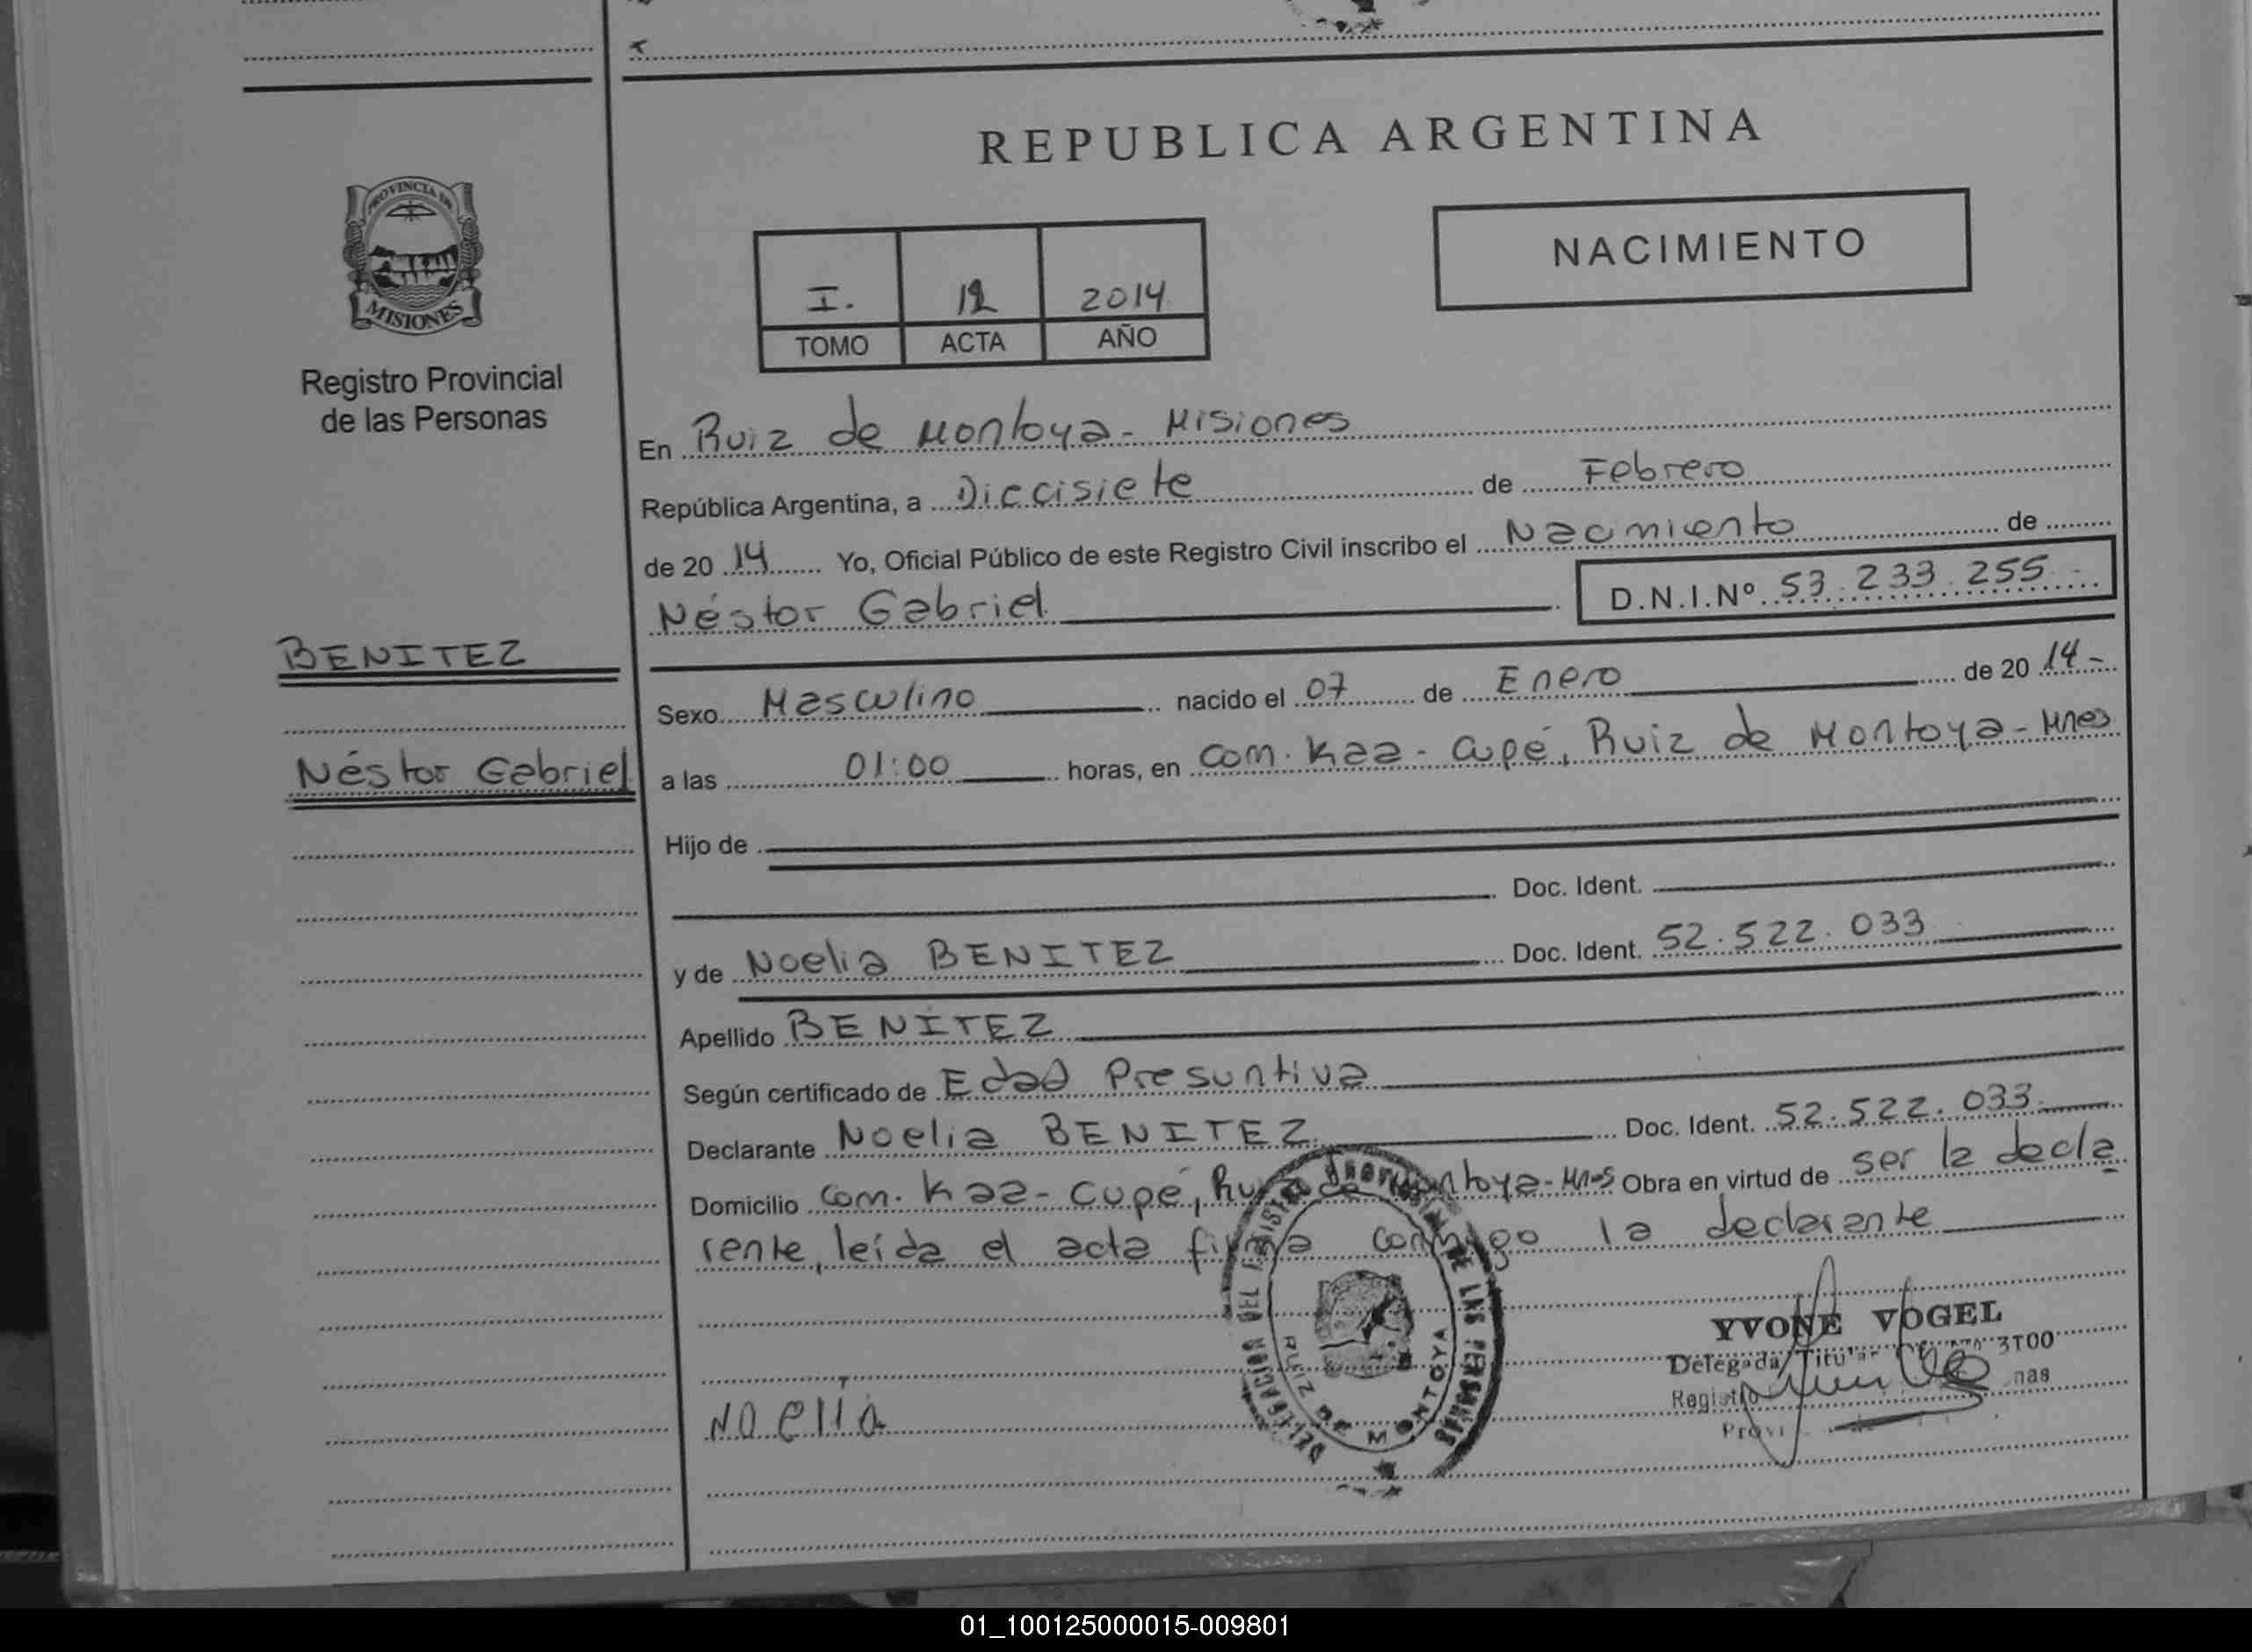 REPUBLICA ARGENTINA
PROVINCIA DE
MISIONES
Registro Provincial
de las Personas
NACIMIENTO
I. 12 2014
TOMO ACTA AÑO
En Ruiz de Montoya - Misiones
República Argentina, a Diecisiete de Febrero
de 20 14 Yo, Oficial Público de este Registro Civil inscribo el Nacimiento de
Néstor Gabriel D.N.I.Nº 53.233.255-
BENITEZ
Néstor Gabriel
Sexo Masculino nacido el 07 de Enero de 20 14-
a las 01:00 horas, en Com. Kaa-Cupé, Ruiz de Montoya-Mnes
Hijo de
Doc. Ident.
y de Noelia BENITEZ Doc. Ident. 52.522.033
Apellido BENITEZ
Según certificado de Edad Presuntiva
Declarante Noelia BENITEZ Doc. Ident. 52.522.033
Domicilio Com. Kaa-Cupé, Ruiz de Montoya-Mnes Obra en virtud de ser la decla
rante, leída el acta firma conmigo la declarante
YVONE VOGEL
Delegada Titular 3T00
Registro nas
Provi
Noelia
DELEGACION DEL REGISTRO DE LAS PERSONAS
RUIZ DE MONTOYA
01_100125000015-009801